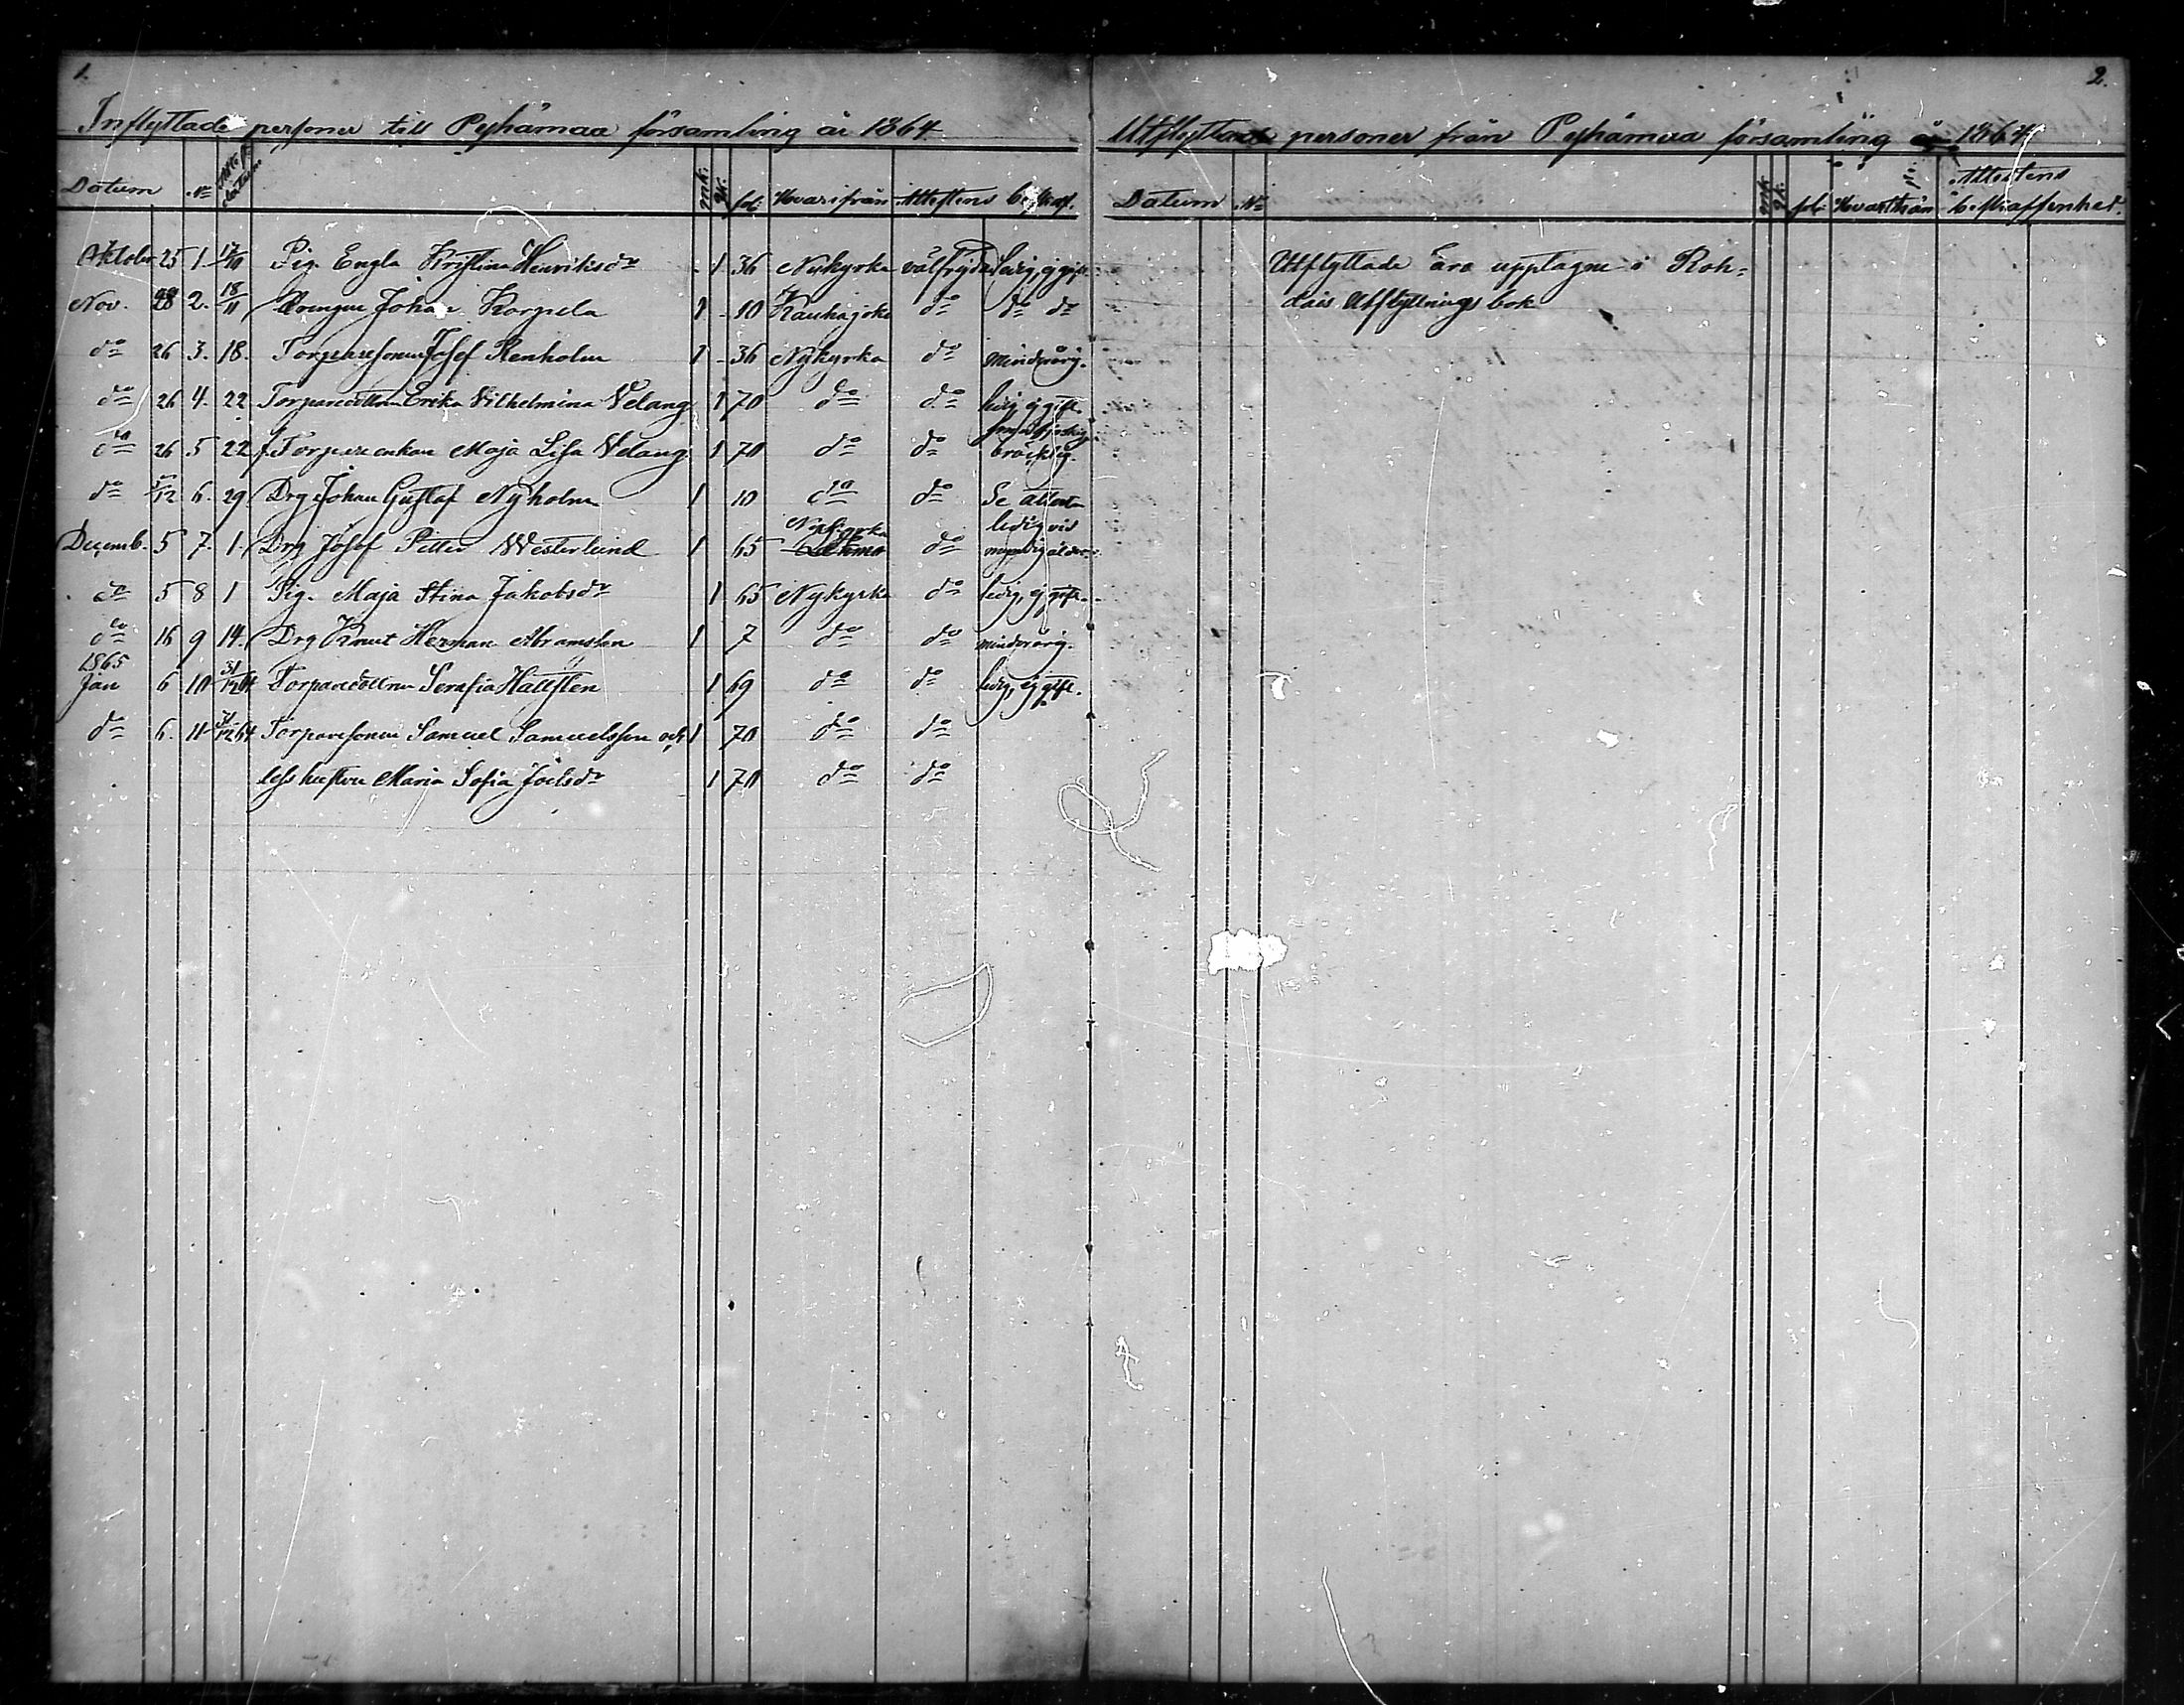 1.
Inflyttade personer till Pyhämaa församling år 1864
Datum № Attest. datum mk. qk. fol. Hvarifrån Attestens beskaf.
Oktober 25 1. 17/10 Pig. Engla Kristina Henriksdr - 1 36 Nykyrka välfrejdad ledig, ej gift.
Nov. 28 2. 18/11 Drengen Johan Korpela 1 - 10 Kauhajoki do do do
do 26 3. 18. Torparesonen Josef Renholm 1 - 36 Nykyrka do minderårig.
do 26 4. 22 Torparedottren Erika Vilhelmina Velang 1 70 do do ledig ej gift.
do 26 5 22 f. Torpare enkan Maja Lisa Velang 1 70 do do bräcklig.
do 5/12 6. 29 Drg Johan Gustaf Nyholm 1 10 do do Se attesten
Decemb. 5 7. 1. Drg Josef Petter Westerlund 1 65 Nykyrka do ledig vid myndig ålder.
do 5 8 1 Pig. Maja Stina Jakobsdr 1 65 Nykyrka do ledig, ej gift.
do 16 9 14. Drg Knut Herman Abramsson 1 7 do do minderårig.
1865
Jan 6 10 31/12 64 Torparedottren Serafia Hallsten 1 69 do do ledig, ej gift.
do 6. 11 31/12 64 Torparesonen Samuel Samuelsson och 1 70 do do
dess hustru Maria Sofia Joelsdr 1 70 do do
2.
Utflyttade personer från Pyhämaa församling år 1864
Datum № mk. qk. fol. Hvarthän Attestens beskaffenhet.
Utflyttade äro upptagne i Roh=
dais Utflyttnings bok